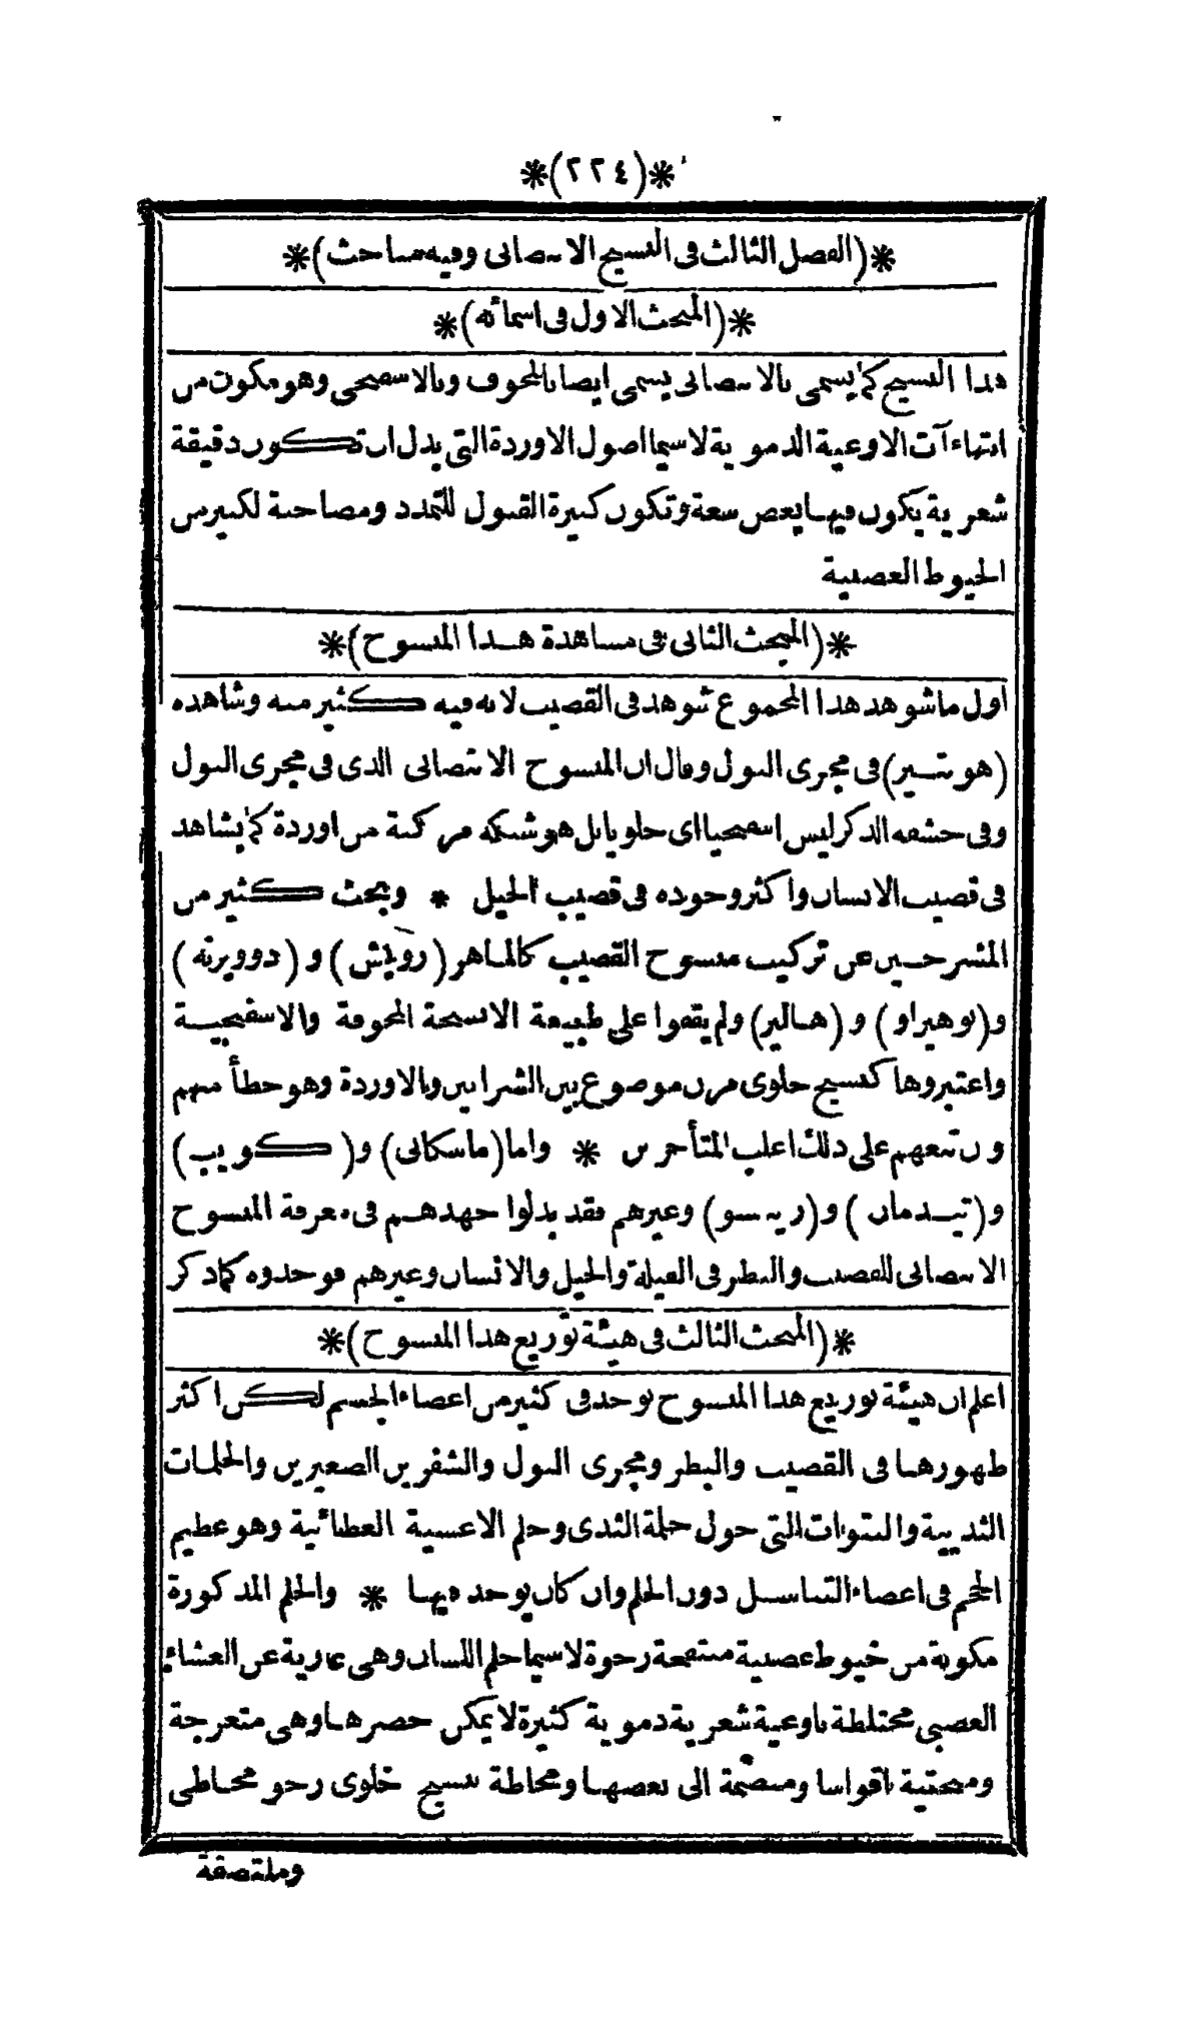 *(٢٢٤)*
*(الفصل الثالث فى النسيج الانتصابى وفيه مباحث)*
*(المبحث الاول فى اسمائه)*
هذا النسيج كما يسمى بالانتصابى يسمى ايضا بالمجوف وبالاسفنجى وهو مكون من
انتهاءآت الاوعية الدموية لاسيما اصول الاوردة التى بدل ان تكون دقيقة
شعرية يكون فيها بعض سعة وتكون كبيرة القبول للتمدد ومصاحبة لكثير من
الخيوط العصبية
*(المبحث الثانى فى مشاهدة هذا المنسوج)*
اول ما شوهد هذا المجموع شوهد فى القضيب لانه فيه كثير منه وشاهده
(هونتسير) فى مجرى البول وقال ان المنسوج الانتصابى الذى فى مجرى البول
وفى حشفه الذكر ليس اسفنجيا اى خلويا بل هو شبكه مركبة من اوردة كما يشاهد
فى قضيب الانسان واكثر وجوده فى قضيب الخيل * وبحث كثير من
المشرحين عن تركيب منسوج القضيب كالماهر (رويش) و (دوويرنه)
و(بوهيراو) و (هالير) ولم يقفوا على طبيعة الانسجة المجوفة والاسفنجية
واعتبروها كنسيج خلوى مرن موضوع بين الشرايين وبالاوردة وهو خطأ منهم
و تبعهم على ذلك اغلب المتأخرين * واما (ماسكانى) و( كويب)
و(تيدمان) و( ريبسو) وغيرهم فقد بذلوا جهدهم فى معرفة المنسوج
الانتصابى للقضيب والبظر فى الفيلة والخيل والانسان وغيرهم فوجدوه كما ذكر
*(المبحث الثالث فى هيئة توزيع هذا المنسوج)*
اعلم ان هيئة توزيع هذا المنسوج توجد فى كثير من اعضاء الجسم لكن اكثر
ظهورها فى القضيب والبظر ومجرى البول والشفرين الصغيرين والحلمات
الثديية والنتوات التى حول حلمة الثدى وحلم الاغشية الغطائية وهو عظيم
الحجم فى اعضاء التناسل دون الحلم وان كان يوجد فيها * والحلم المذكورة
مكونة من خيوط عصبية منتفخة رخوة لاسيما حلم اللسان وهى عارية عن الغشاء
العصبى مختلطة باوعية شعرية دموية كثيرة لا يمكن حصرها وهى متعرجة
ومنحنية اقواسا ومنضمة الى بعضها ومحاطة بنسيج خلوى رخو مخاطى
وملتصقة